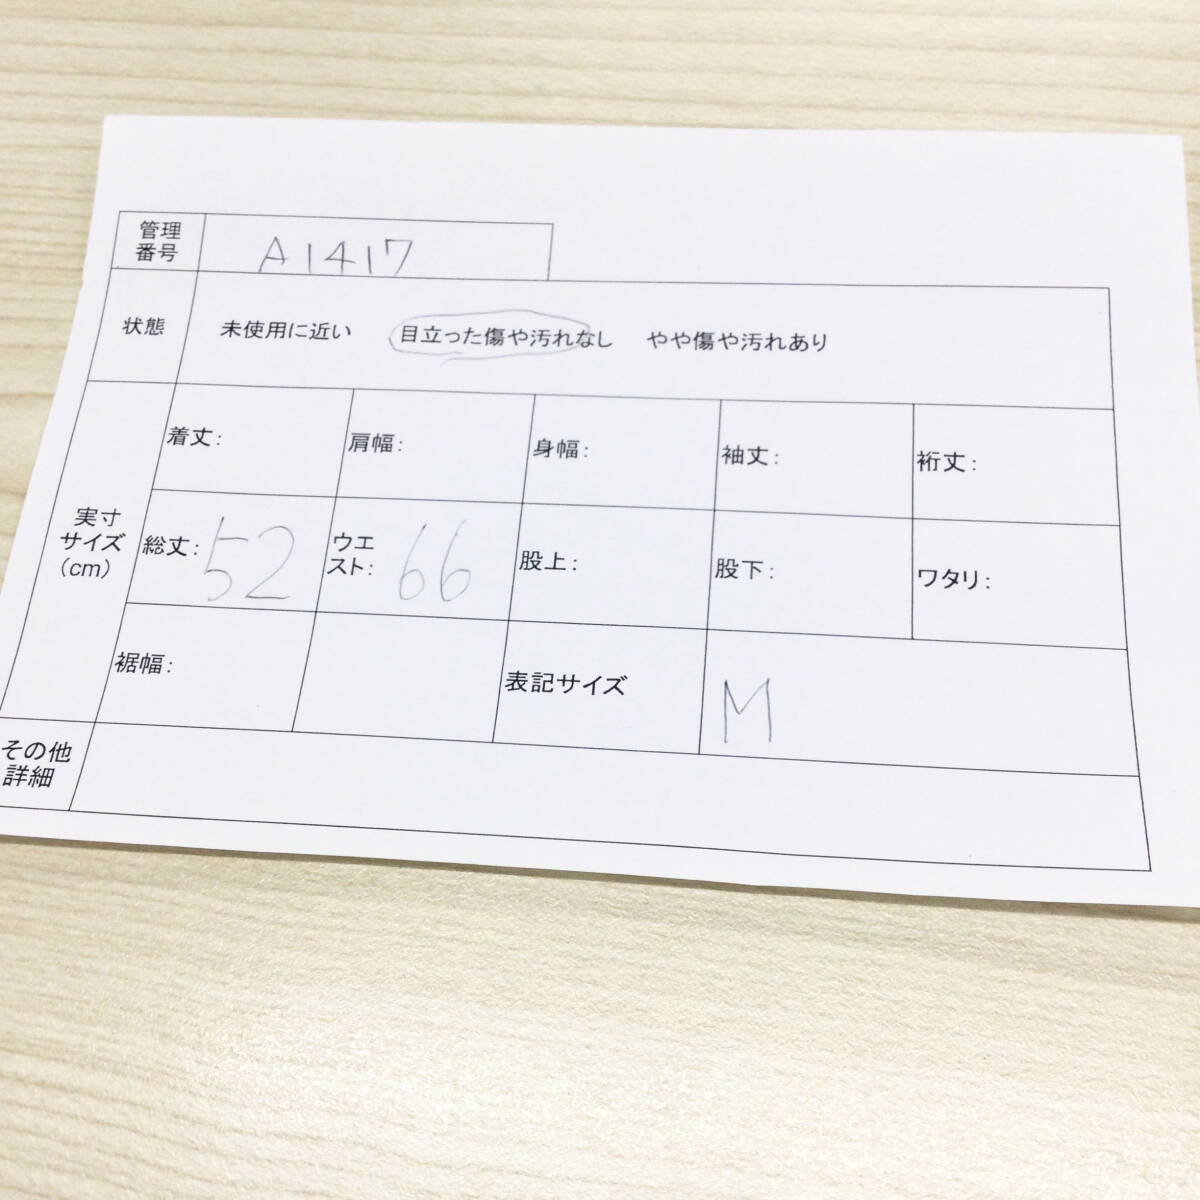 管理
番号
A1417
状態
未使用に近い 目立った傷や汚れなし やや傷や汚れあり
実寸
サイズ
(cm)
着丈: 肩幅: 身幅: 袖丈: 裄丈:
総丈: 52 ウエ
スト: 66 股上: 股下: ワタリ:
裾幅: 表記サイズ M
その他
詳細